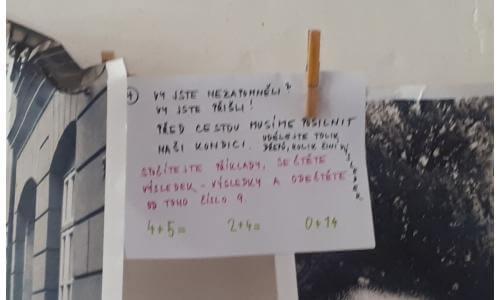 4 VY JSTE NEZAPOMNĚLI?
VY JSTE PŘIŠLI!
PŘED CESTOU MUSÍME POSILNIT
NAŠI KONDICI. UDĚLEJTE TOLIK
DŘEPŮ, KOLIK ČINÍ VÝSLEDEK
SPOČÍTEJTE PŘÍKLADY, SEČTĚTE
VÝSLEDEK - VÝSLEDKY A ODEČTĚTE
OD TOHO ČÍSLO 9.
4+5= 2+4= 0+14